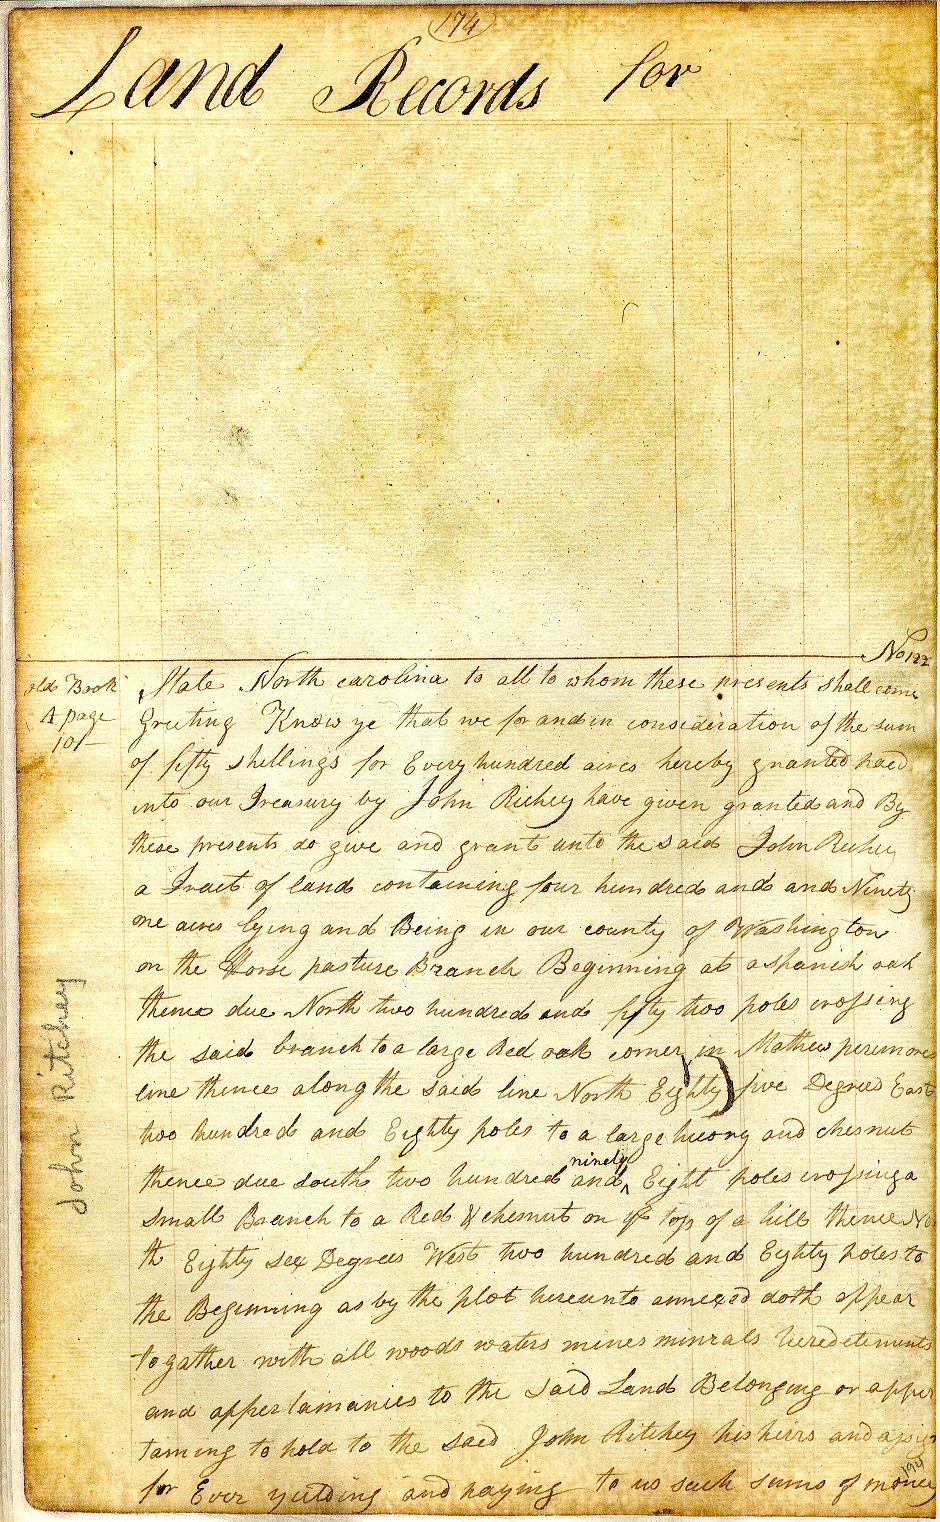 174
Land Records for
No 122
old Book
A page
101-
State North carolina to all to whom these presents shall come
Greeting Know ye that we for and in consideration of the sum
of fifty shillings for Every hundred aires hereby granted paed
into our Treasury by John Richey have given granted and By
these presents do give and grant unto the said John Richey
a Tract of land containing four hundred and and Ninety
one aires lying and Being in our county of Washington
on the Horse pasture Branch Beginning at a spanish oak
thence due North two hundred and fifty two poles crossing
the said branch to a large Red oak corner in Mathew perimores
line thence along the said line North Eighty five Degrees East
two hundred and Eighty poles to a large hicory and chesnut
thence due south two hundred and ^ninety Eight poles crossing a
small Branch to a Red & chesnut on ye top of a hill thence No
th Eighty sex Degrees West two hundred and Eighty poles to
the Beginning as by the plot hereunto annexed doth appear
togather with all woods waters mines minrals heredetements
and appertainancies to the said Land Belonging or apper
taining to hold to the said John Ritchey his heirs and assigns
for Ever yeilding and paying to us such sums of money
John Ritchey
194